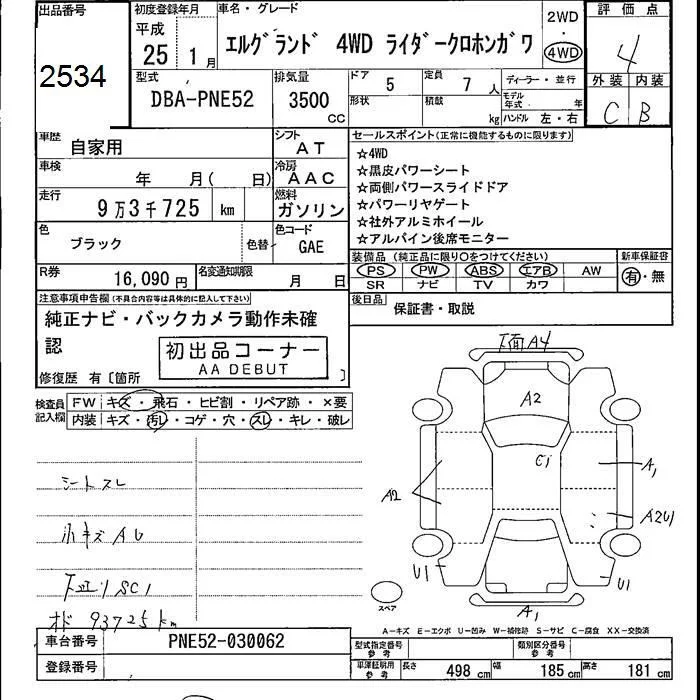 出品番号
2534
初度登録年月
平成
25 1月
車名・グレード
エルグランド 4WD ライダークロホンガワ
2WD
・
4WD
評価点
4
外装 内装
C B
型式
DBA-PNE52
排気量
3500
CC
ドア 5
定員 7 人
形状
積載 kg
ディーラー・並行
モデル年式 年
ハンドル 左・右
車歴
自家用
シフト
AT
車検
年 月( 日)
冷房
AAC
走行
9万3千725 km
燃料
ガソリン
色
ブラック
色替
色コード
GAE
R券
16,090円
名変通知期限
月 日
セールスポイント(正常に機能するものに限ります)
☆4WD
☆黒皮パワーシート
☆両側パワースライドドア
☆パワーリヤゲート
☆社外アルミホイール
☆アルパイン後席モニター
装備品 (純正品に限り○をつけてください)
PS PW ABS エアB AW
SR ナビ TV カワ
新車保証書
有・無
後日品
保証書・取説
注意事項申告欄(不具合内容等は具体的に記入して下さい)
純正ナビ・バックカメラ動作未確
認
初出品コーナー
AA DEBUT
修復歴 有〔箇所 〕
検査員
記入欄
FW キズ・飛石・ヒビ割・リペア跡・×要
内装 キズ・汚レ・コゲ・穴・スレ・キレ・破レ
シートスレ
小キズAU
下廻りSC1
オド 93725km
下面A4
A2
C1
A1
A2
A2U1
U1
U1
A1
スペア
A―キズ E―エクボ U―凹み W―補修跡 S―サビ C―腐食 XX―交換済
車台番号
PNE52-030062
登録番号
型式指定番号
参考
類別区分番号
参考
参考
長さ 498 cm
幅 185 cm
高さ 181 cm